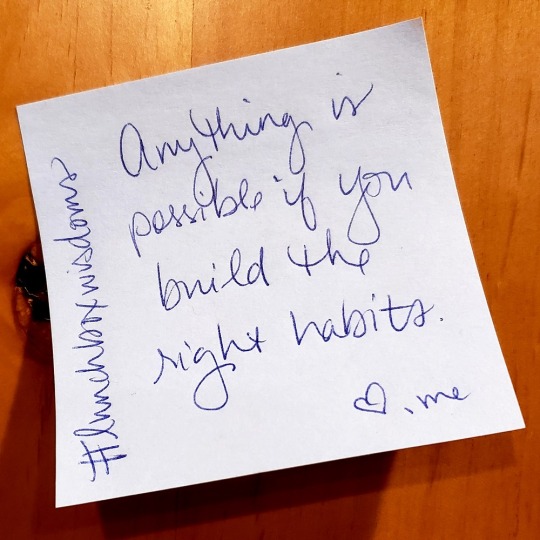 Anything is
possible if you
build the
right habits.
♡, me
#lunchboxwisdoms